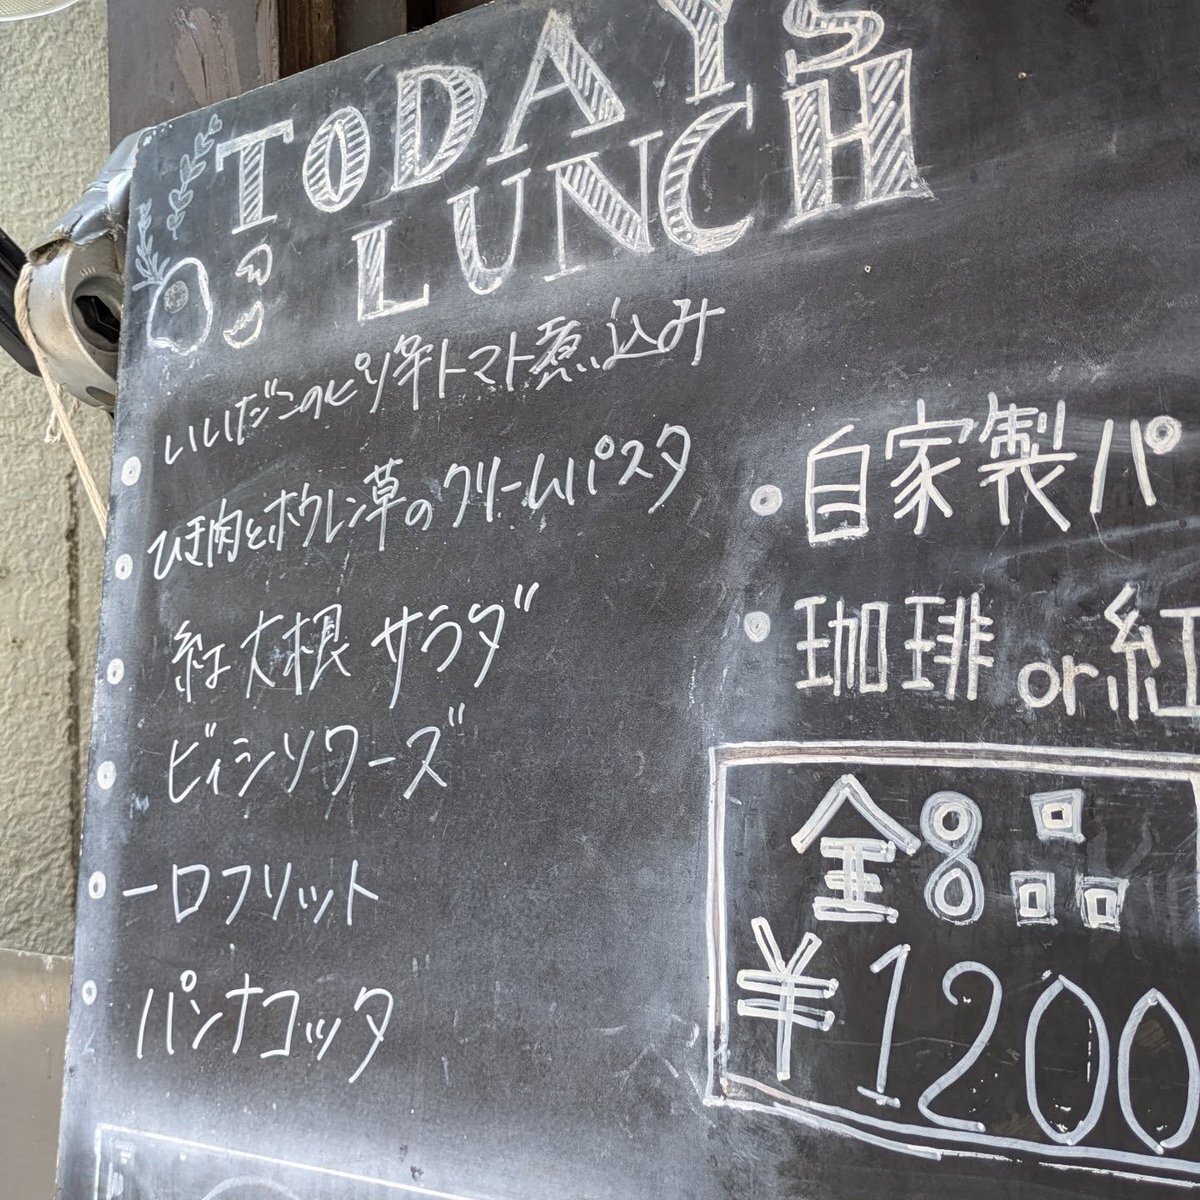 TODAYS
LUNCH
いいだこのピリ辛トマト煮込み
ひき肉とホウレン草のクリームパスタ
紅大根サラダ
ビィシソワーズ
一口フリット
パンナコッタ
自家製パ
珈琲or紅
全8品
¥1200